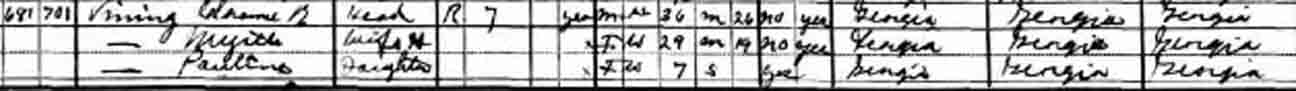 681 701 Vining B Head R 7 yes M W 36 M 26 no yes Georgia Georgia Georgia
— Myrtle Wife H F W 29 M 19 no yes Georgia Georgia Georgia
— Pauline Daughter F W 7 S yes Georgia Georgia Georgia